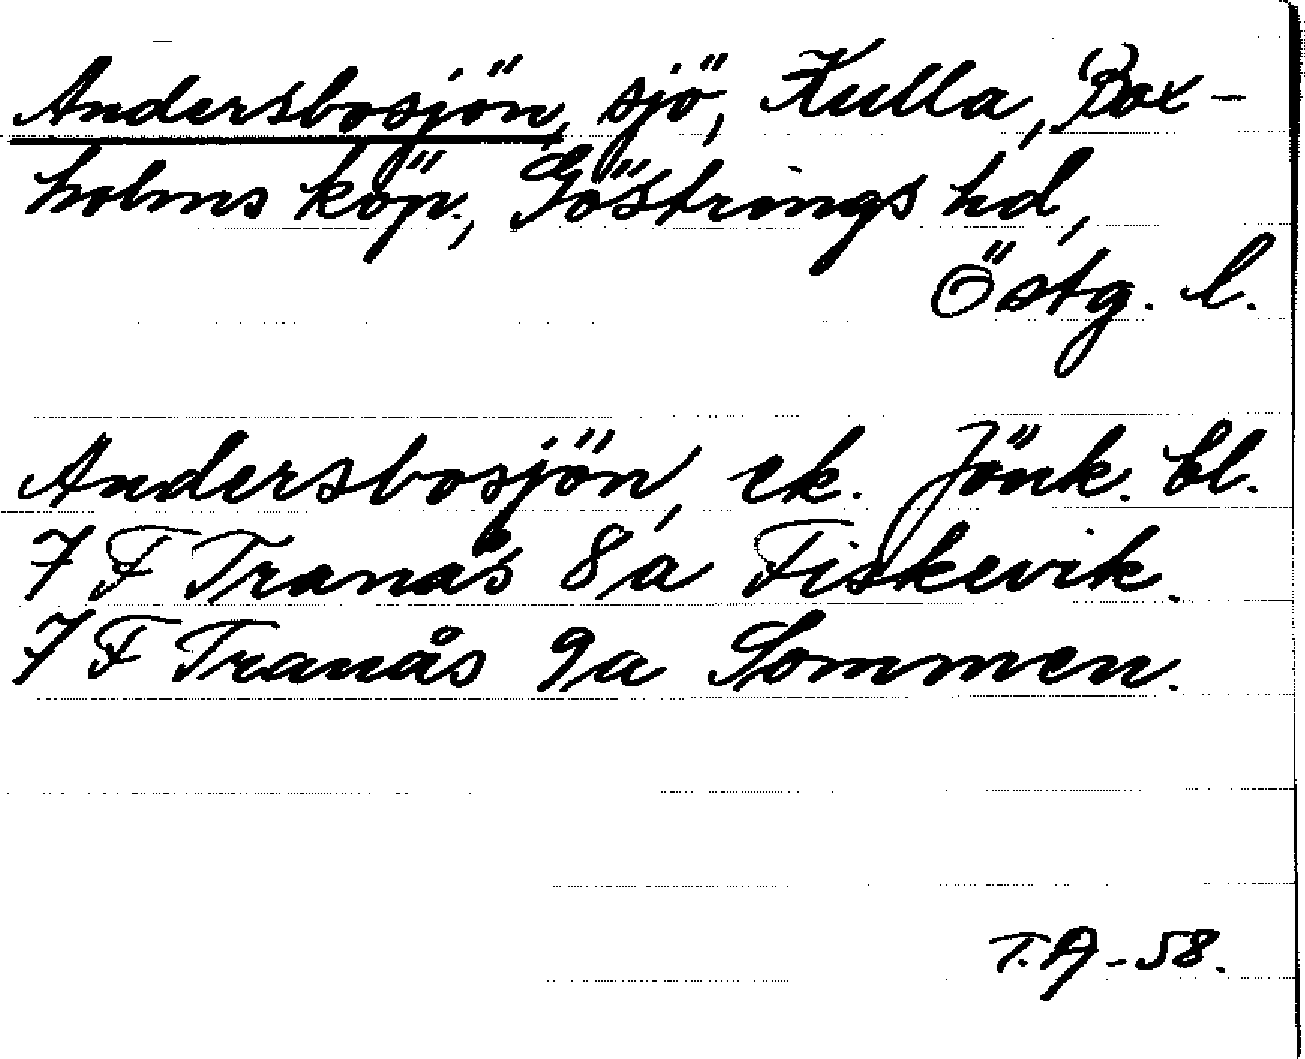 Andersbosjön, sjö, Kulla, Box-
holms köp., Göstrings hd,
Östg. l.
Andersbosjön, ek. Jönk. bl.
7 F Tranås 8a Fiskevik.
7 F Tranås 9a Sommen.
T.A - 58.